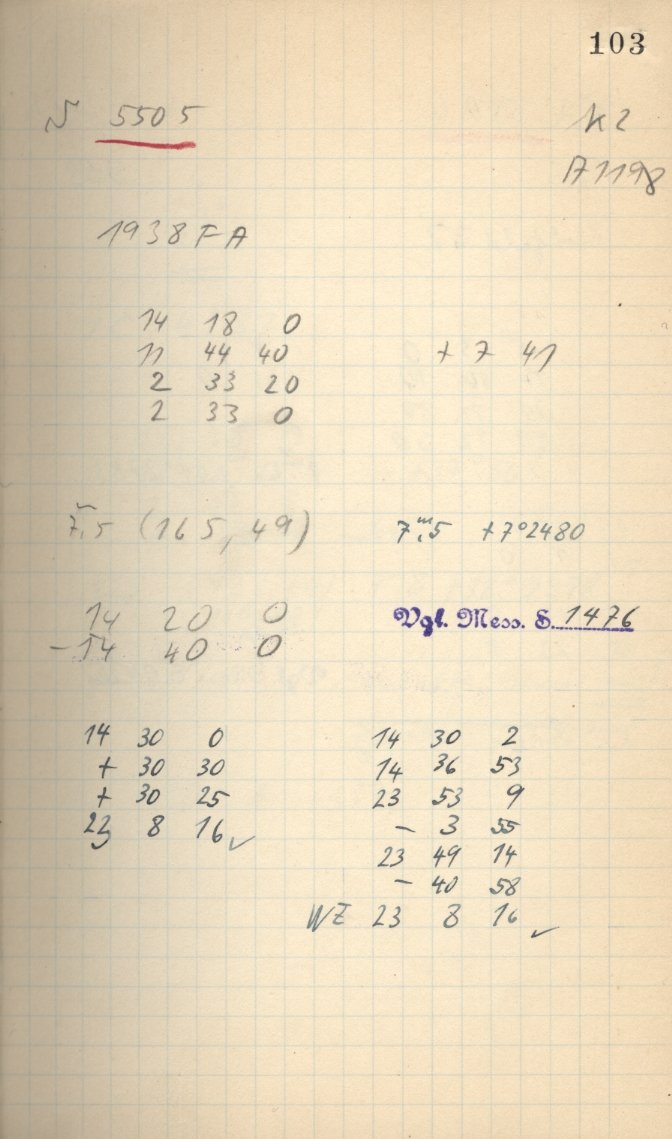 103
N 5505
K2
A 1198
1938 FA
14 18 0
11 44 40 + 7 41
2 33 20
2 33 0
7,5 (165, 49) 7ᵐ,5 +7°2480
14 20 0
Vgl. Mess. S. 1476
-14 40 0
14 30 0 14 30 2
+ 30 30 14 36 53
+ 30 25 23 53 9
23 8 16 ✓ - 3 55
23 49 14
- 40 58
WZ 23 8 16 ✓